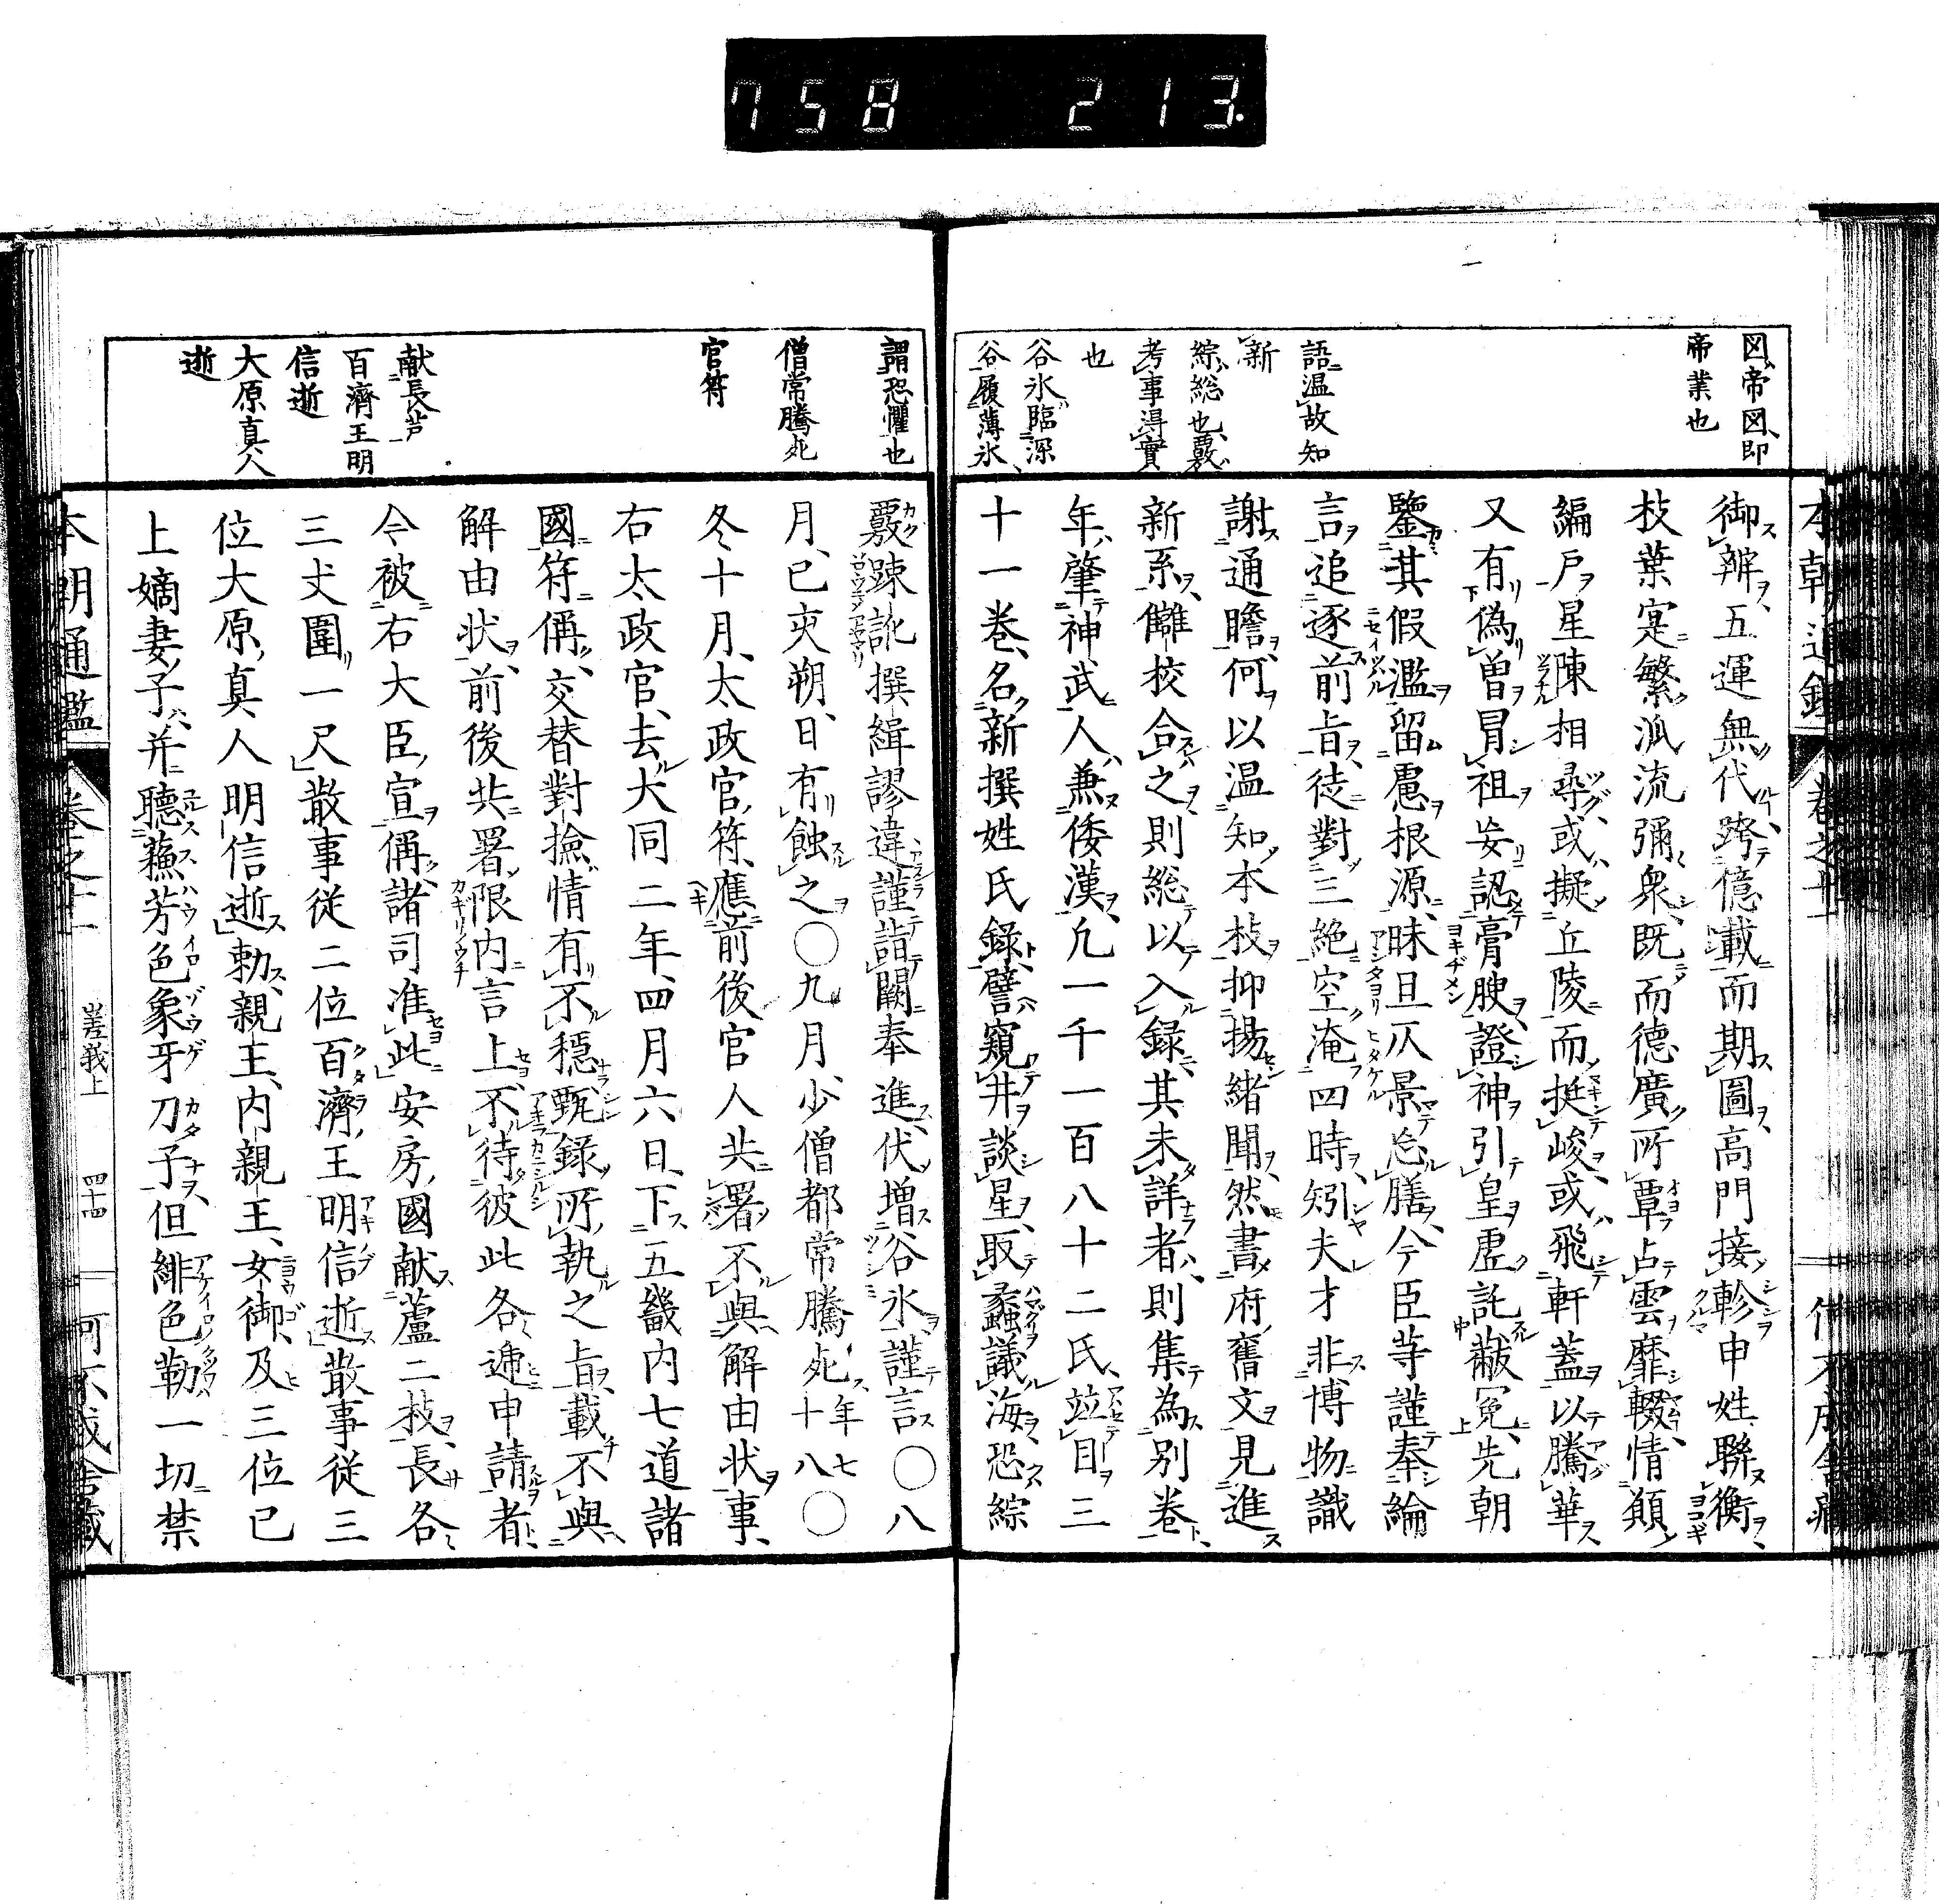 758 213.
図、帝図、即
帝業也
語温故知
新
綜総也、覈
考事得實
也
谷氷臨深
谷履薄氷、
御辨五運無代跨億載而期圖高門接軫申姓聯衡
枝葉寔繁泒流彌衆既而德廣所覃占雲靡輟情願
編戸星陳相尋或擬丘陵而挺峻或飛軒蓋以騰華
又有偽曽冒祖妄認膏腴證神引皇虚託黻冕先朝
鑒其假濫留慮根源昧旦仄景忘膳今臣等謹奉綸
言追逐前旨徒對三絶空淹四時矧夫才非博物識
謝通瞻何以温知本枝抑揚緒聞然書府舊文見進
新系讎校合之則総以入録其未詳者則集為別卷
年肇神武人兼倭漢凢一千一百八十二氏竝目三
十一巻名新撰姓氏錄譬窺井談星取蠡議海恐綜
謂恐懼也
僧常騰死
官符
献長芦
百濟王明
信逝
大原真人
逝
覈踈訛撰緝謬違謹詣闕奉進伏增谷氷謹言〇八
月己夾朔日有蝕之〇九月少僧都常騰死年七十八〇
冬十月太政官符應前後官人共署不與解由状事
右太政官去大同二年四月六日下五畿内七道諸
國符偁交替對撿情有不穏甄録所執之旨載不與
解由状前後共署限内言上不待彼此各逓申請者
今被右大臣宣偁諸司准此安房國献蘆二枝長各
三丈圍一尺散事従二位百濟王明信逝散事従三
位大原真人明信逝勅親王内親王女御及三位已
上嫡妻子并聽蘓芳色象牙刀子但緋色勒一切禁
本朝通鑑 巻之二十 嵯峨上 四十四 何不成舎藏